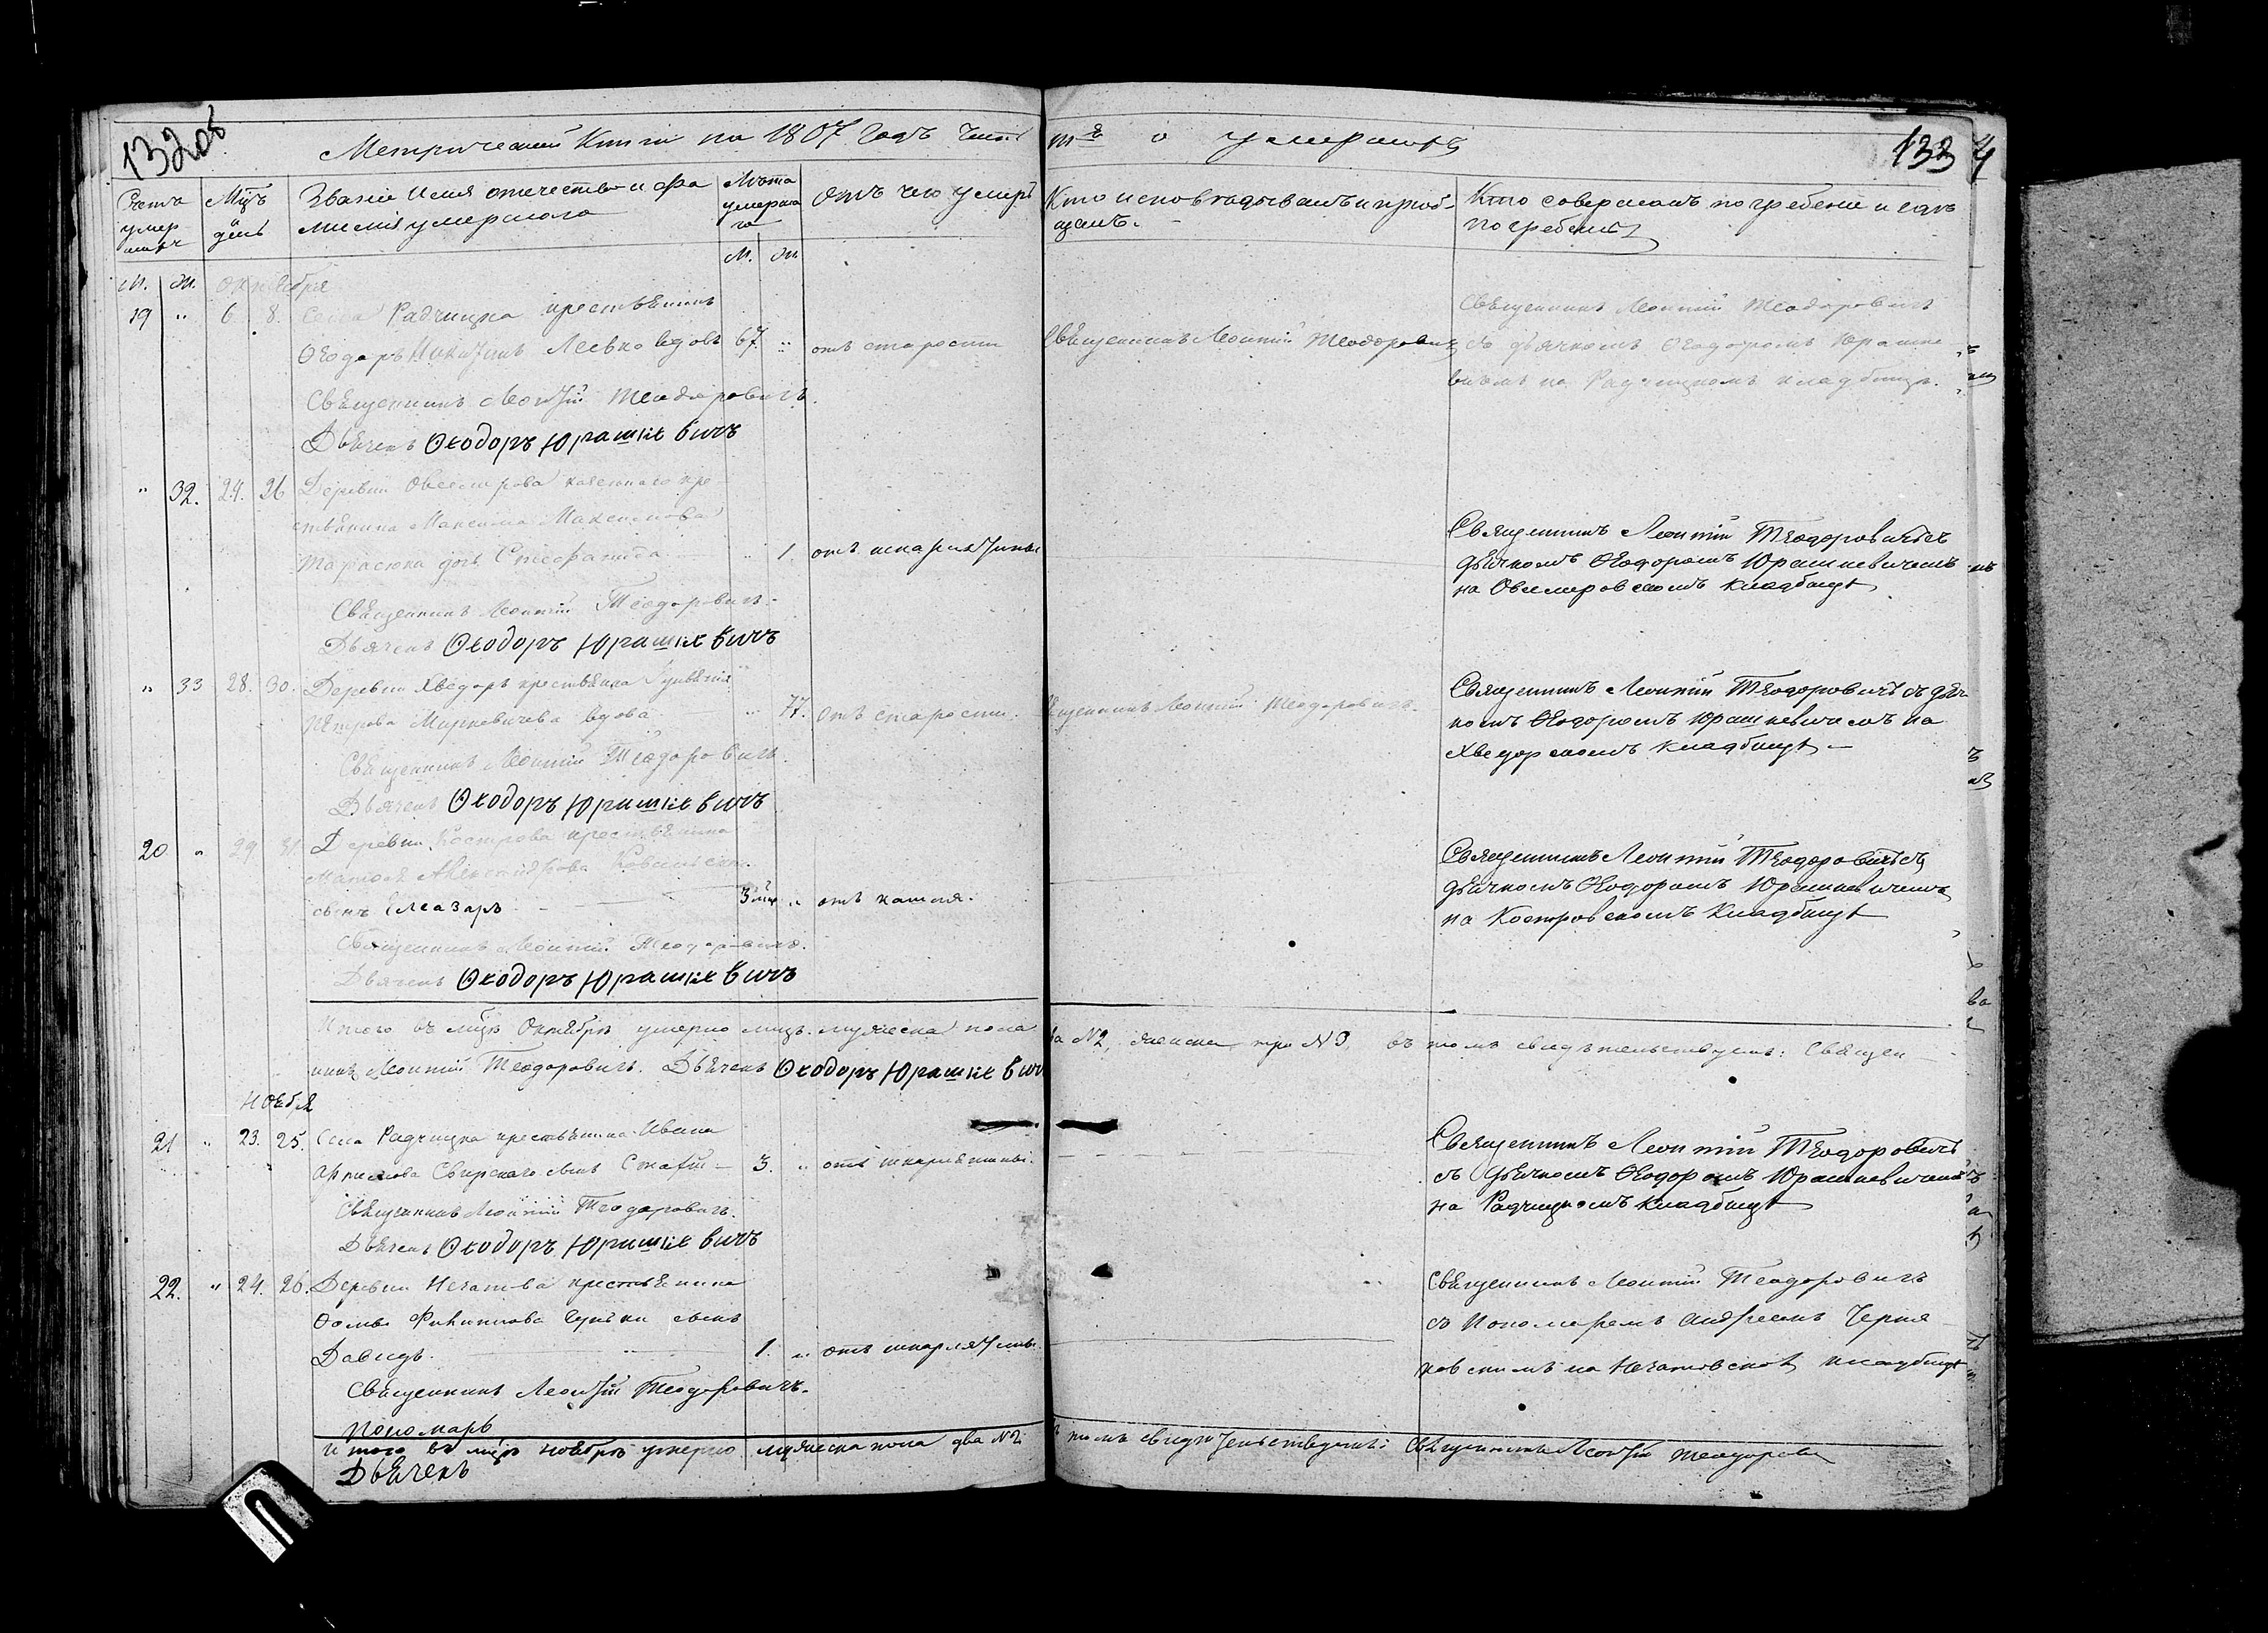 132об
133
Метрической Книги на 1867 Годъ часть
III-я о умершихъ
Счетъ умершихъ
Мцъ день
Званіе Имя отечество и фамилія умершаго
Лѣта умершаго
Отъ чего умеръ
Кто исповѣдывалъ и пріобщалъ.
Кто совершалъ погребеніе и гдѣ погребены
М. Ж.
М. Ж. октября
19 " 6 8. Села Радчицка крестьянинъ
Ѳеодоръ Левко вдовъ 67. " отъ старости
Священникъ Леонтій Теодоровичъ
Священникъ Леонтій Теодоровичъ
съ дьячкомъ Ѳеодоромъ Юрашке
вичемъ на Радчицкомъ кладбищѣ.
Священникъ Леонтій Теодоровичъ.
Дьячекъ Ѳеодоръ Юрашкевичъ
" 32. 24. 26 Деревни казеннаго кре
стьянина Максима Максимова
Тарасюка дочь Стефанида " 1. отъ
Священникъ Леонтій Теодоровичъ съ
дьячкомъ Ѳеодоромъ Юрашкевичемъ
на Овсемировскомъ кладбищѣ
Священникъ Леонтій Теодоровичъ.
Дьячекъ Ѳеодоръ Юрашкевичъ
" 33 28. 30. Деревни Хведоръ крестьянка
Петрова Миркевичева вдова " 77. отъ старости.
Священникъ Леонтій Теодоровичъ.
Священникъ Леонтій Теодоровичъ съ дьяч
комъ Ѳеодоромъ Юрашкевичемъ на
Хведорскомъ кладбищѣ
Священникъ Леонтій Теодоровичъ.
Дьячекъ Ѳеодоръ Юрашкевичъ
20 " 29 31 Деревни Кострова крестьянина
Александрова
сынъ Елеазаръ 3 мца " отъ кашля.
Священникъ Леонтій Теодоровичъ съ
дьячкомъ Ѳеодоромъ Юрашкевичемъ
на Костровскомъ кладбищѣ
Священникъ Леонтій Теодоровичъ.
Дьячекъ Ѳеодоръ Юрашкевичъ
Итого въ мцѣ Октябрѣ умерло лицъ мужеска пола
два №2, женска три №3, въ томъ свидѣтельствуемъ: Священ
никъ Леонтій Теодоровичъ. Дьячекъ Ѳеодоръ Юрашкевичъ
ноября
21 " 23. 25. Села Радчицка крестьянина Ивана
Свирскаго сынъ 3. " отъ
Священникъ Леонтій Теодоровичъ
съ дьячкомъ Ѳеодоромъ Юрашкевичемъ
на Радчицкомъ кладбищѣ
Священникъ Леонтій Теодоровичъ.
Дьячекъ Ѳеодоръ Юрашкевичъ
22. " 24. 26. Деревни Нечатова крестьянина
Ѳомы Филиппова сынъ
Давидъ. 1. " отъ
Священникъ Леонтій Теодоровичъ
съ Пономаремъ Андреемъ Черня
ковскимъ на Нечатовскомъ кладбищѣ
Священникъ Леонтій Теодоровичъ.
Пономарь
Итого въ мцѣ ноябрѣ умерло мужеска пола два №2
въ томъ свидѣтельствуемъ: Священникъ Леонтій Теодорови
Дьячекъ